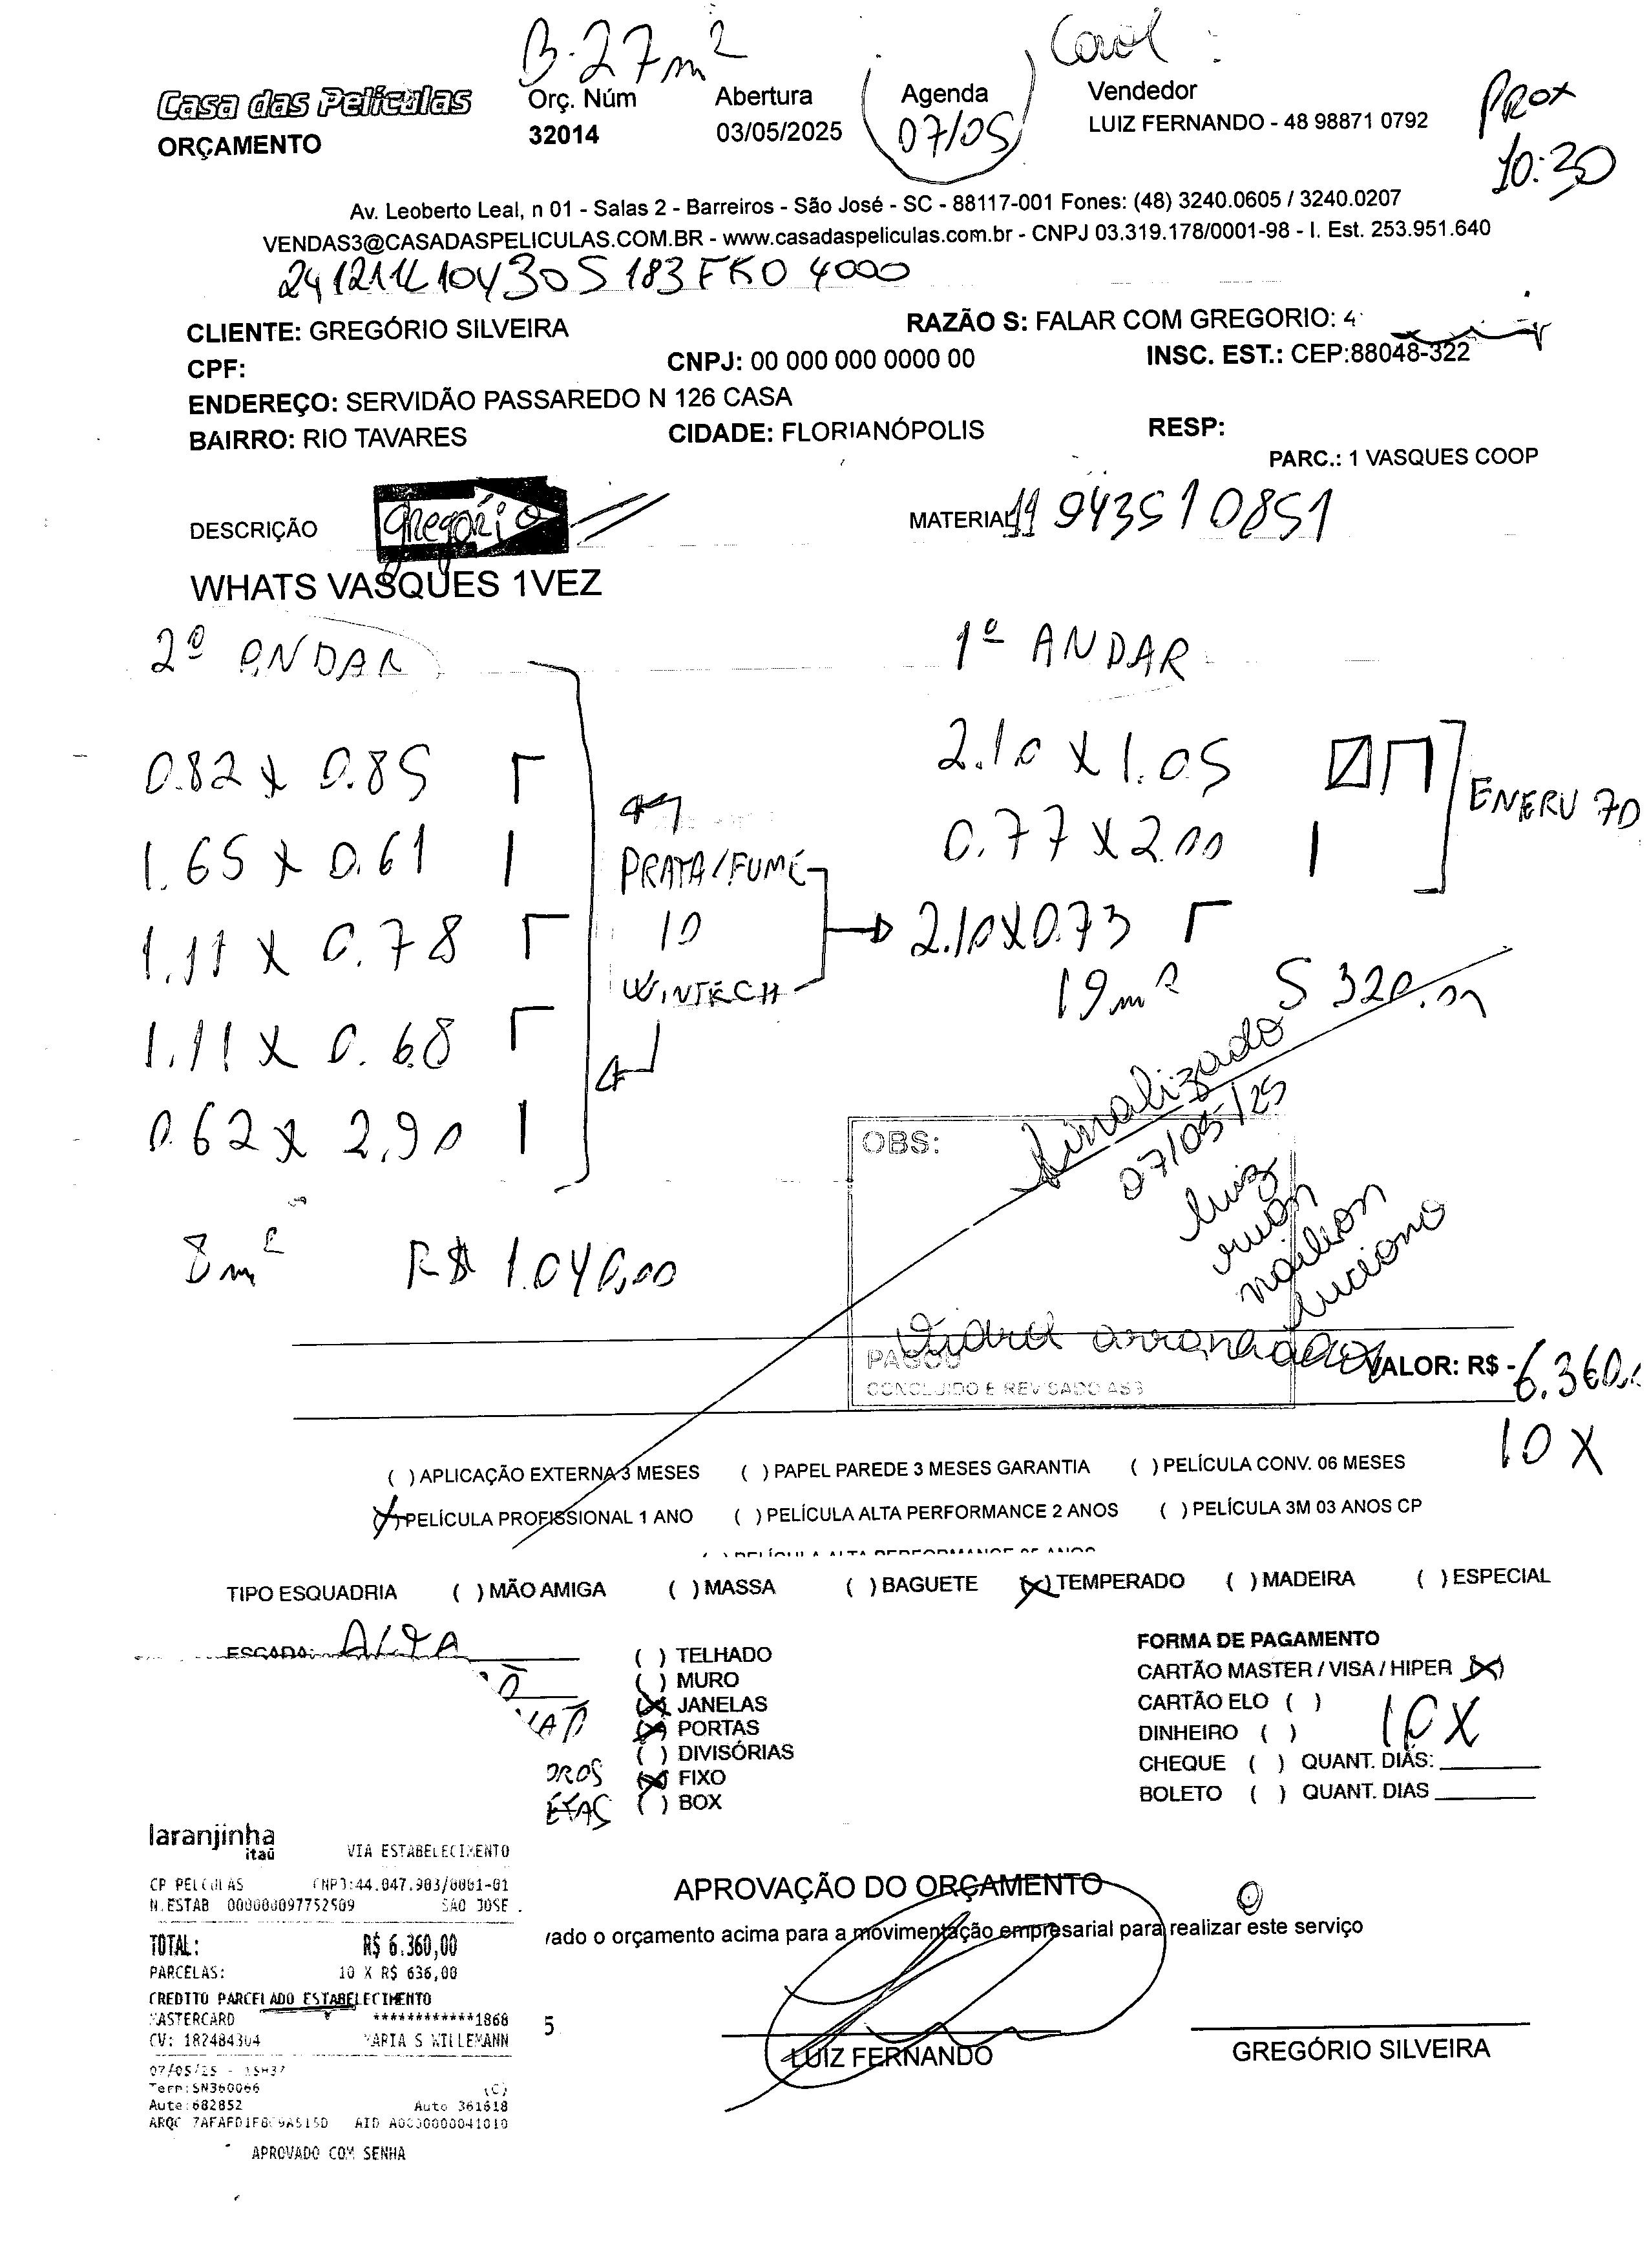 B.27m²
Carol
Casa das Películas
Orç. Núm Abertura Agenda Vendedor
ORÇAMENTO 32014 03/05/2025 07/05 LUIZ FERNANDO - 48 98871 0792
PROX
10:30
Av. Leoberto Leal, n 01 - Salas 2 - Barreiros - São José - SC - 88117-001 Fones: (48) 3240.0605 / 3240.0207
VENDAS3@CASADASPELICULAS.COM.BR - www.casadaspeliculas.com.br - CNPJ 03.319.178/0001-98 - I. Est. 253.951.640
CLIENTE: GREGÓRIO SILVEIRA RAZÃO S: FALAR COM GREGORIO: 4
CPF: CNPJ: 00 000 000 0000 00 INSC. EST.: CEP:88048-322
ENDEREÇO: SERVIDÃO PASSAREDO N 126 CASA
BAIRRO: RIO TAVARES CIDADE: FLORIANÓPOLIS RESP:
PARC.: 1 VASQUES COOP
DESCRIÇÃO Gregório MATERIAL 11 943510851
WHATS VASQUES 1VEZ
2º ANDAR 1º ANDAR
0.82 x 0.85 2.10 x 1.05
1.65 x 0.61 PRATA/FUMÊ 0.77 x 2.00 ENERU 70
1.11 x 0.78 10 2.10x0.73
WINTECH 19m² 5 320,00
1.11 x 0.68
0.62 x 2,90
finalizado
07/05/25
luiz
ruan
nailson
luciano
OBS:
8m² R$ 1.040,00
PAGOU VALOR: R$ - 6.360,
CONCLUIDO E REVISADO ASS
10 X
( ) APLICAÇÃO EXTERNA 3 MESES ( ) PAPEL PAREDE 3 MESES GARANTIA ( ) PELÍCULA CONV. 06 MESES
(X) PELÍCULA PROFISSIONAL 1 ANO ( ) PELÍCULA ALTA PERFORMANCE 2 ANOS ( ) PELÍCULA 3M 03 ANOS CP
( ) PELÍCULA ALTA PERFORMANCE 05 ANOS
TIPO ESQUADRIA ( ) MÃO AMIGA ( ) MASSA ( ) BAGUETE (X) TEMPERADO ( ) MADEIRA ( ) ESPECIAL
ESCADA: ALTA
( ) TELHADO
( ) MURO
(X) JANELAS
(X) PORTAS
( ) DIVISÓRIAS
(X) FIXO
( ) BOX
FORMA DE PAGAMENTO
CARTÃO MASTER / VISA / HIPER (X)
CARTÃO ELO ( )
DINHEIRO ( ) 10X
CHEQUE ( ) QUANT. DIAS:
BOLETO ( ) QUANT. DIAS
laranjinha
itaú
VIA ESTABELECIMENTO
CP PELCULAS CNPJ:44.047.903/0001-01
N.ESTAB 000000097752509 SAO JOSE
TOTAL: R$ 6.360,00
PARCELAS: 10 X R$ 636,00
CREDITO PARCELADO ESTABELECIMENTO
MASTERCARD ************1868
CV: 182484304 MARIA S WILLEMANN
07/05/25 - 15H37
Term:SN360066 (C)
Aute:682852 Auto 361618
AID A0000000041010
APROVADO COM SENHA
APROVAÇÃO DO ORÇAMENTO
vado o orçamento acima para a movimentação empresarial para realizar este serviço
5
LUIZ FERNANDO GREGÓRIO SILVEIRA